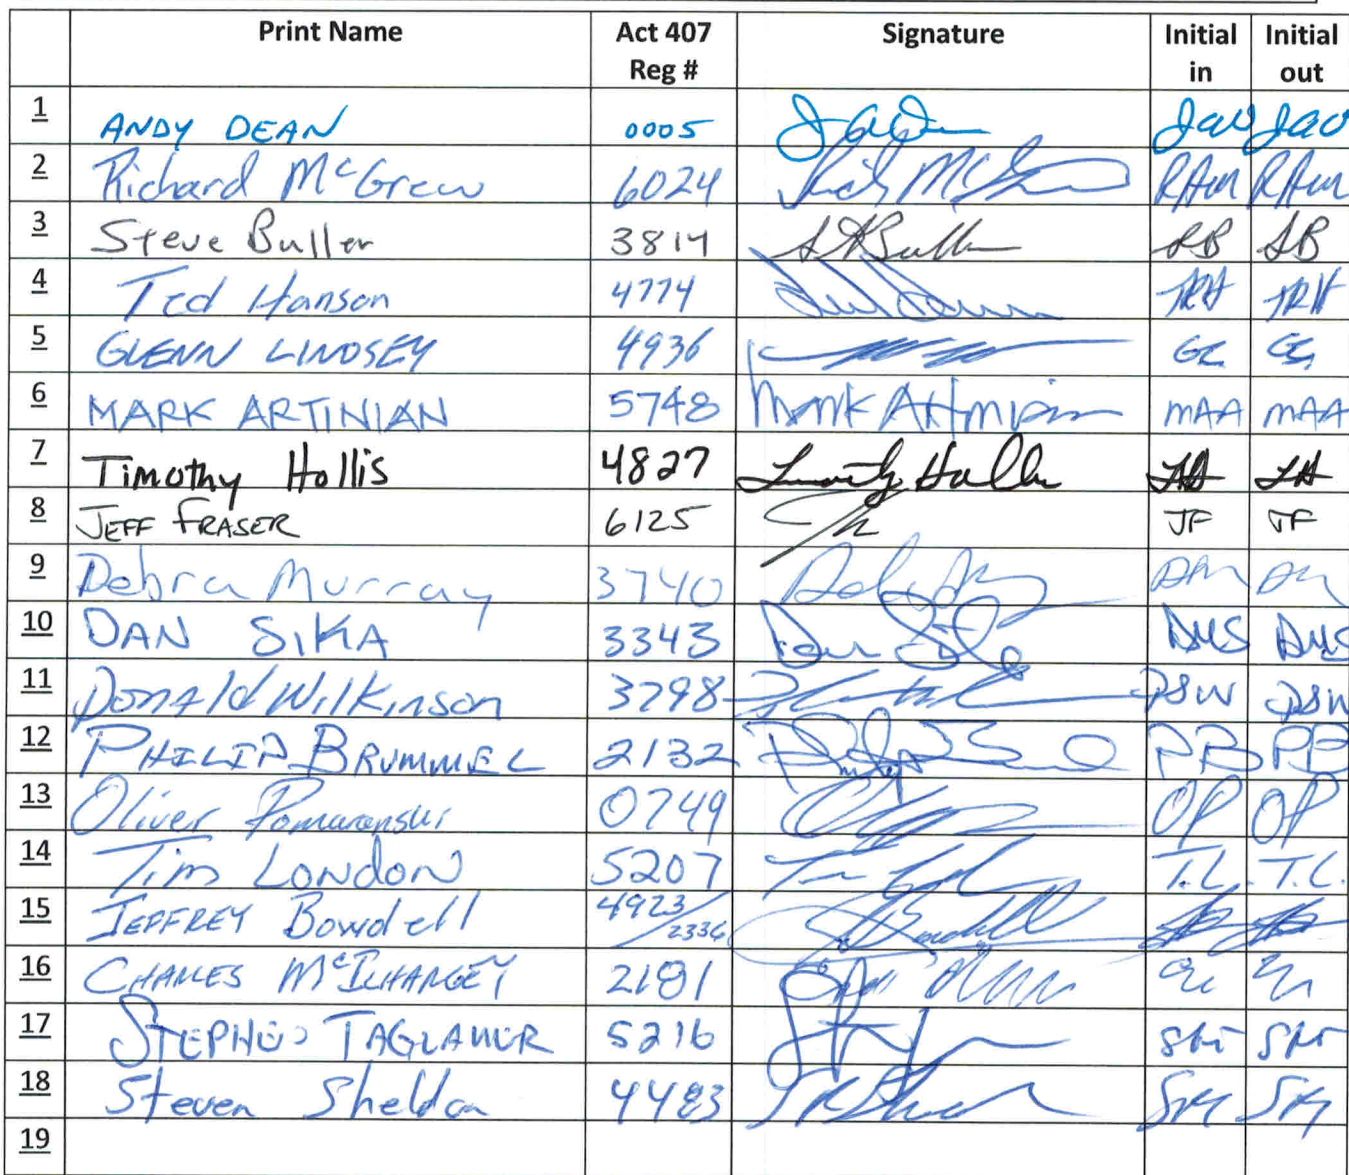 Print Name Act 407 Reg # Signature Initial in Initial out
1 ANDY DEAN 0005
2 Richard McGrew 6024 RAM RAM
3 Steve Buller 3814 SB SB
4 Ted Hanson 4774 TRH TRH
5 GLENN LINDSEY 4936 GL GL
6 MARK ARTINIAN 5748 Mark Artinian MAA MAA
7 Timothy Hollis 4827 Timothy Hollis TH TH
8 JEFF FRASER 6125 JF JF
9 Debra Murray 3740 DM DM
10 DAN SIKA 3343 DMS DMS
11 Donald Wilkinson 3798 DSW DSW
12 PHILIP BRUMMEL 2132 PB PB
13 Oliver Pomaranski 0749 OP OP
14 Tim London 5207 T.L. T.L.
15 JEFFREY Bowdell 4923/2336
16 CHARLES 2181
17 5216
18 Steven Sheldon 4483
19